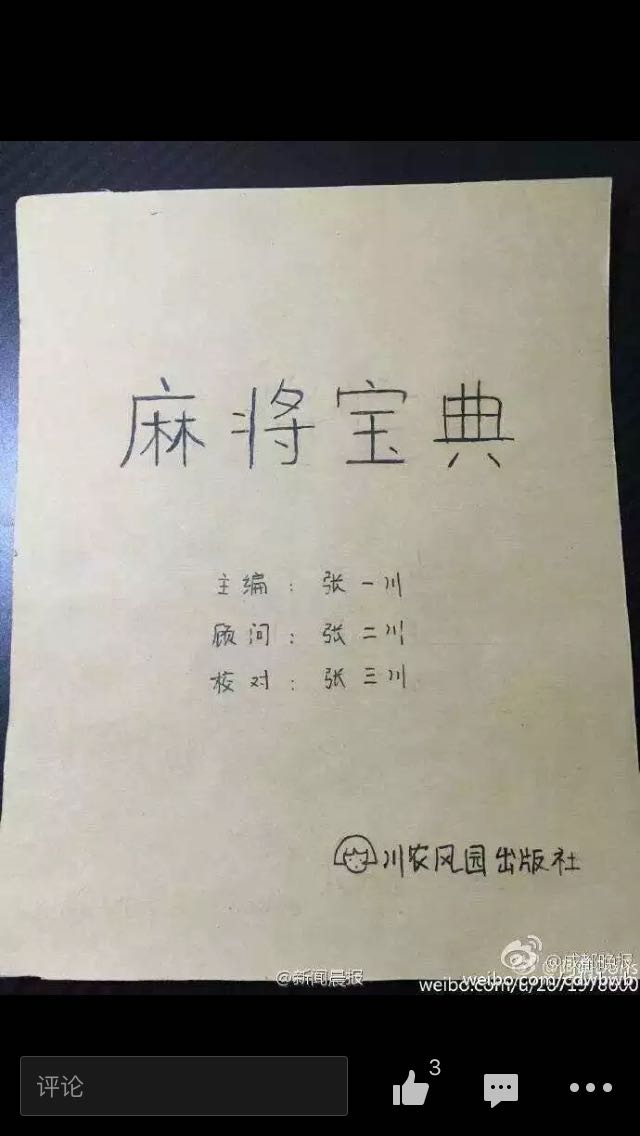 麻将宝典
主编：张一川
顾问：张二川
校对：张三川
川农风园出版社
@成都晚报
@新闻晨报
weibo.com/cdwbwb
weibo.com/u/2071978600
评论
3